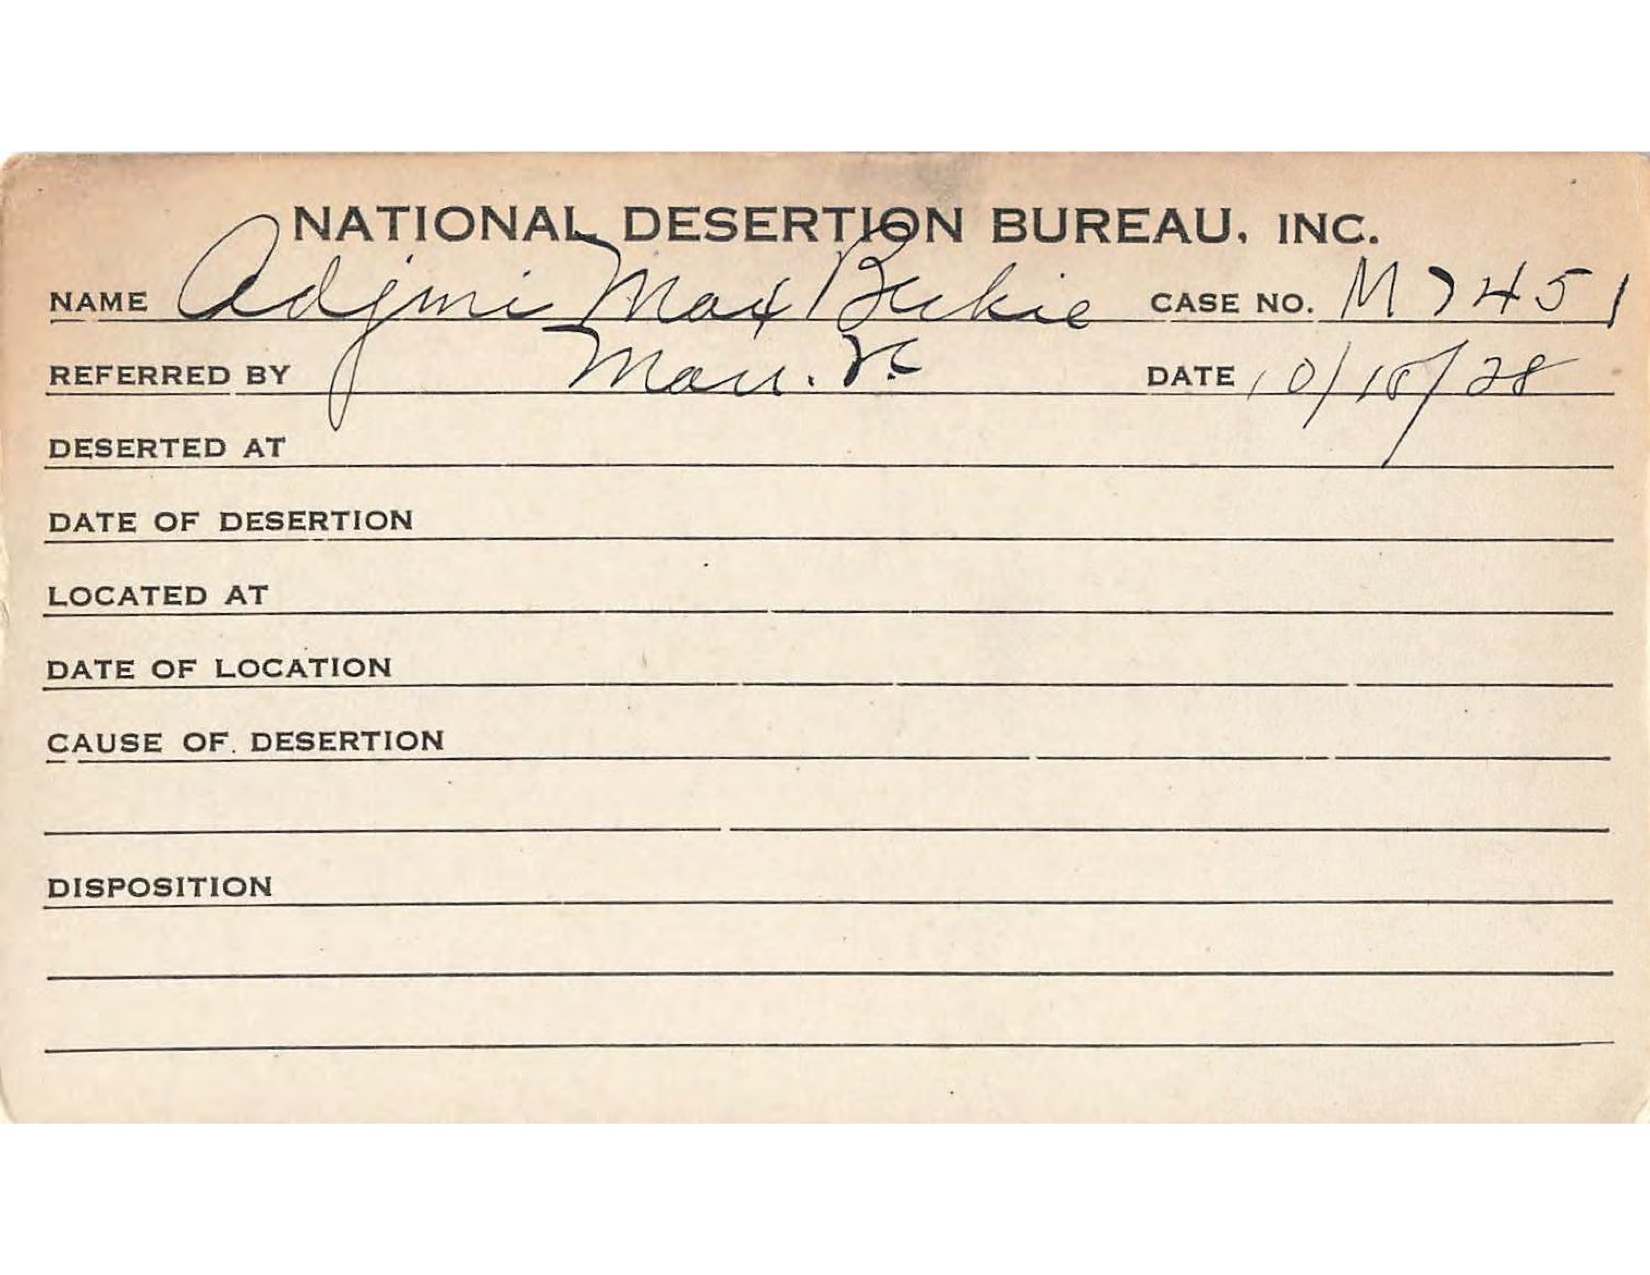 NATIONAL DESERTION BUREAU, INC.
NAME Adjmi Max Beckie CASE NO. M7451
REFERRED BY DATE 10/18/28
DESERTED AT
DATE OF DESERTION
LOCATED AT
DATE OF LOCATION
CAUSE OF DESERTION
DISPOSITION